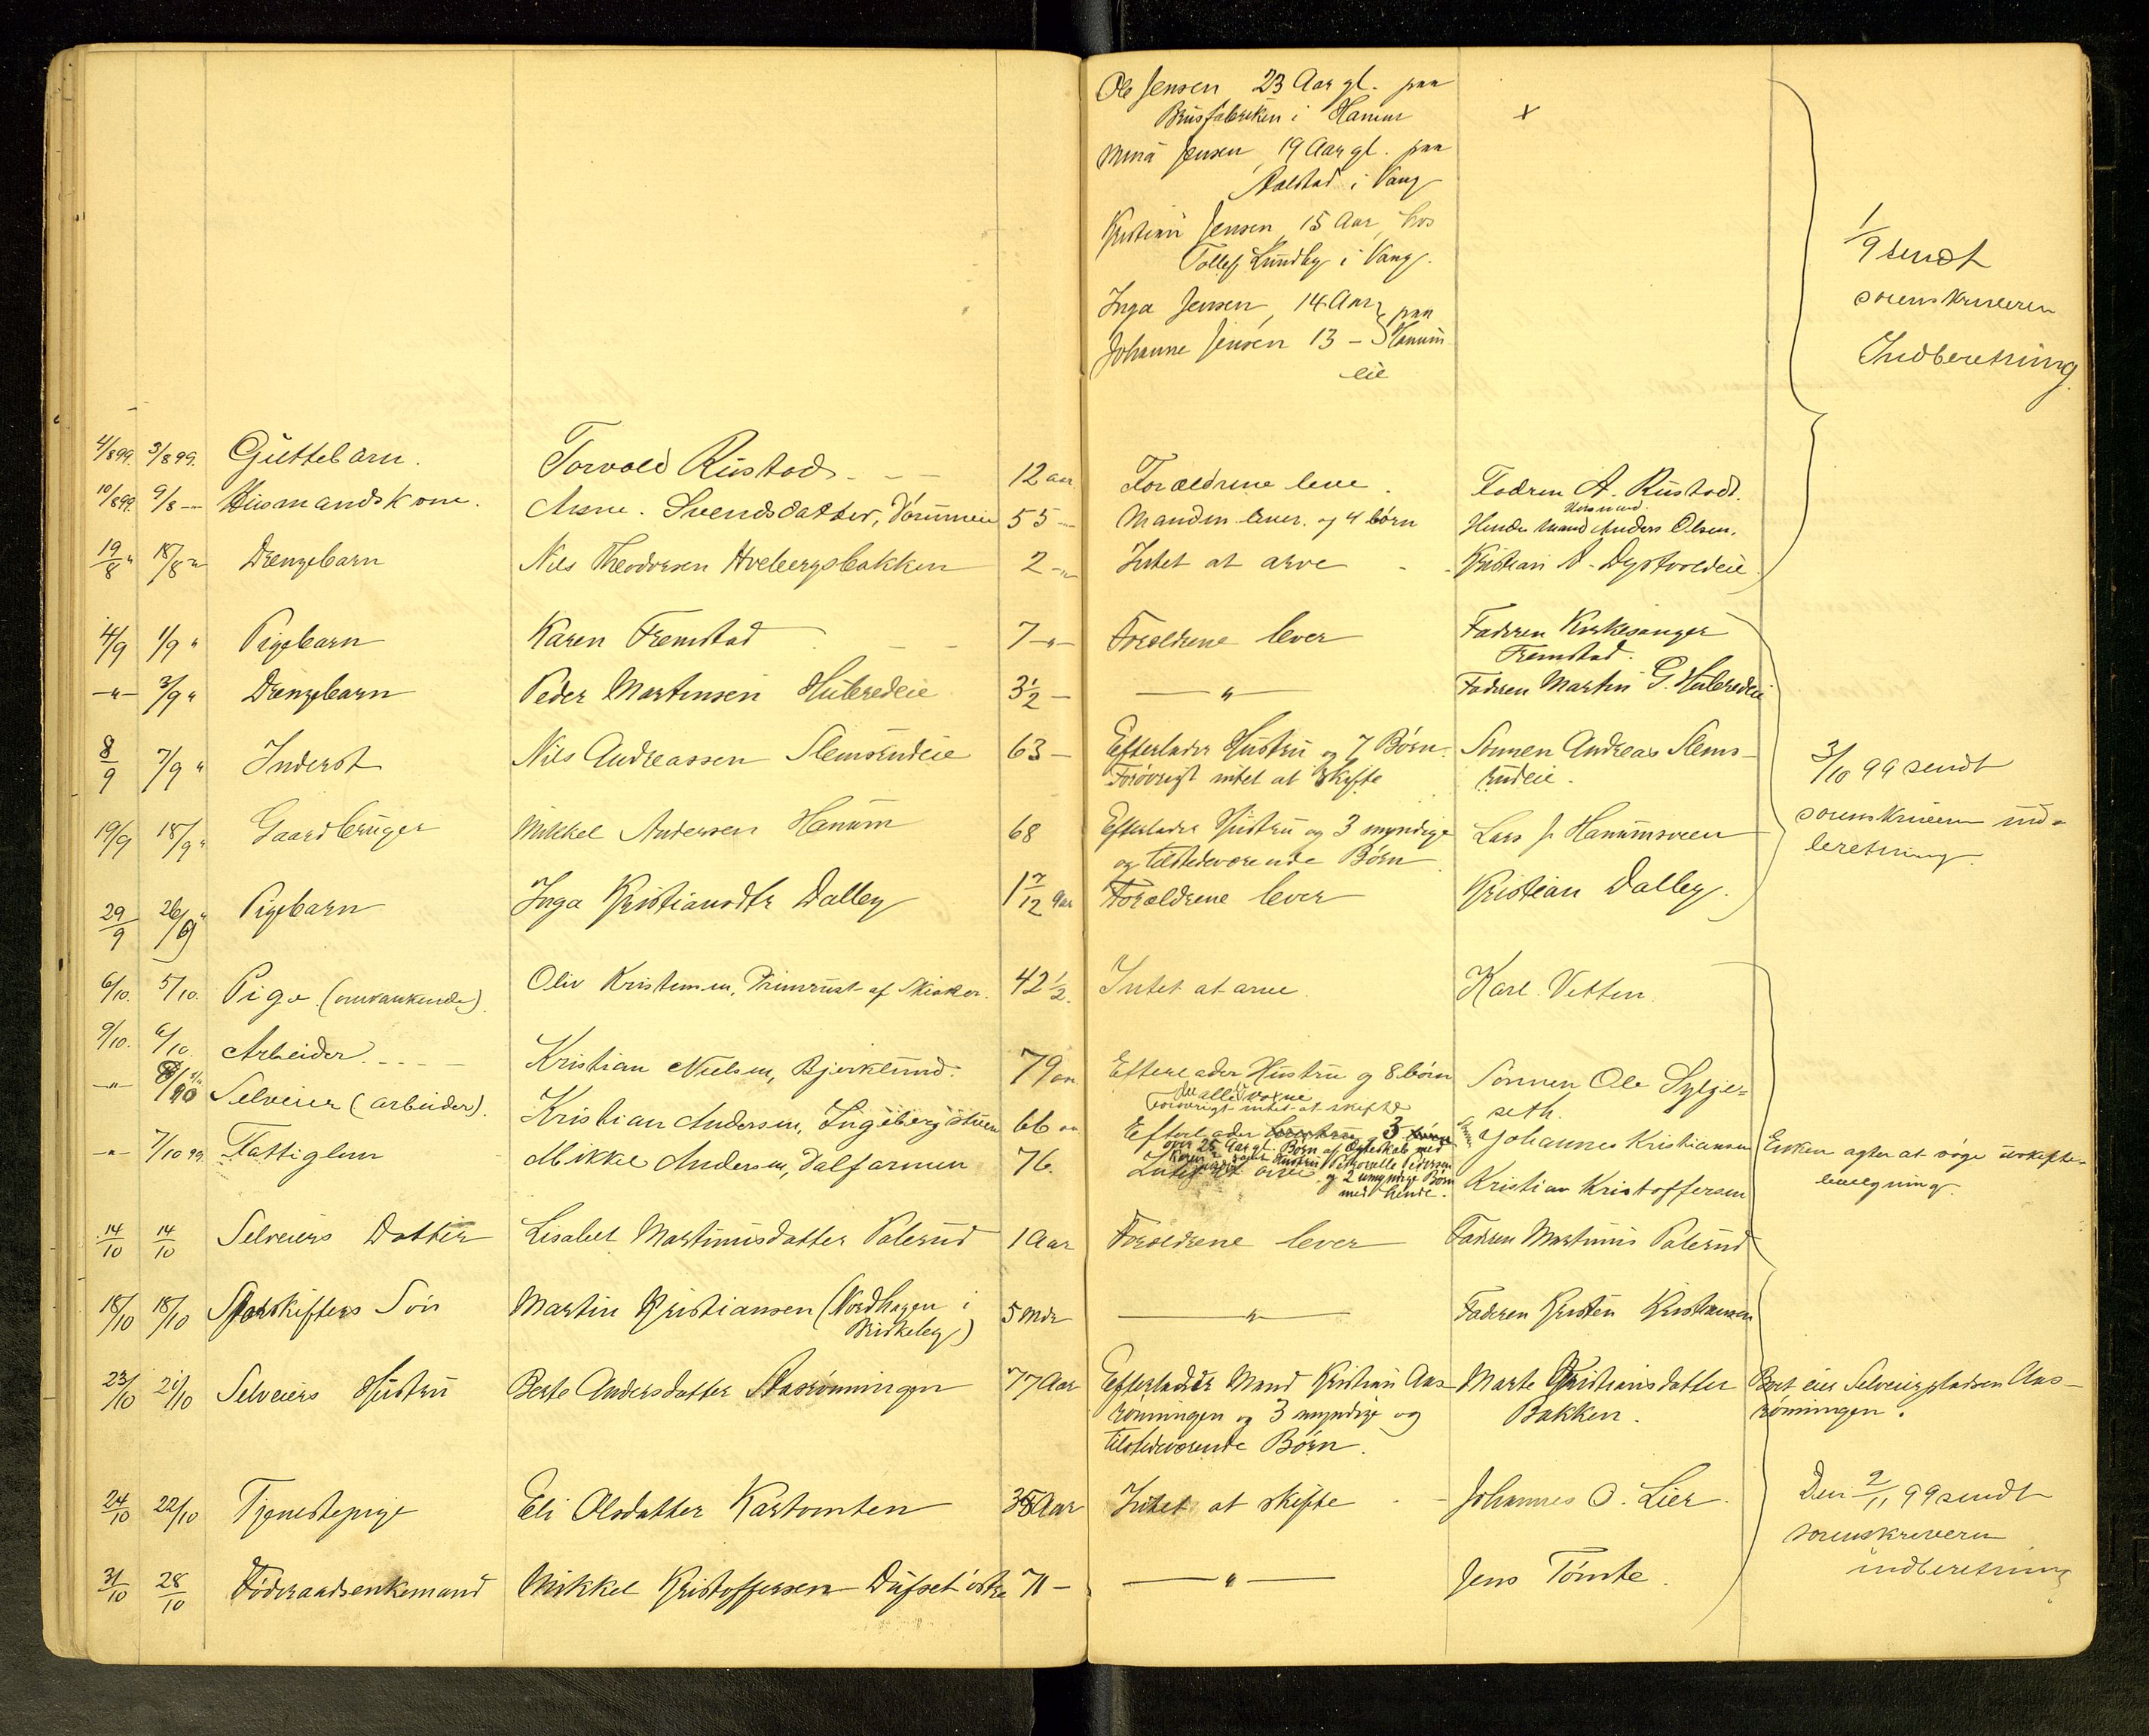 Ole Jensen 23 Aar gl. paa
Brusfabriken i Hamar
Mina Jensen, 19 Aar gl. paa
Aalstad i Vang
Kristian Jensen, 15 Aar, hos
Tollef Lundby i Vang.
Inga Jensen, 14 Aar } paa
Johanne Jensen 13 - } Hanum
eie
+
1/9 sendt
sorenskriveren
Indberetning.
4/8 99. 3/8 99. Guttebarn. Torvald Rustad - - 12 aar Forældrene leve. Fadren A. Rustad.
10/8 99. 9/8 - Husmandskone. Anne Svendsdatter, 55 - Manden lever og 4 børn Hendes Mand Anders Olsen.
19/8 " 18/8 " Drengebarn Nils Theodorsen Hvebergsbakken 2 - " Intet at arve - Kristian
4/9 1/9 " Pigebarn Karen Fremstad - - 7 - " - Forældrene lever Faderen Kirkesanger
Fremstad.
- " - 3/9 " Drengebarn Peder Martinsen Huberedeie 3 1/2 - - " - Faderen Martin G. Huberedeie
8/9 7/9 " Inderst Nils Andreassen Slemsrudeie 63 - Efterlader Hustru og 7 Børn. Sønnen Andreas Slems-
Forøvrigt intet at skifte rudeie.
3/10 99 sendt
19/9 18/9 " Gaardbruger Mikkel Andersen Hanum 68 Efterlader Hustru og 3 myndige Lars J. Hanumsveen
sorenskriveren ind-
og tilstedeværende Børn
beretning.
29/9 26/9 " Pigebarn Inga Kristiansdtr Dalby 1 7/12 aar Forældrene lever Kristian Dalby.
6/10. 5/10. Pige (omvankende). Oliv Kristensen, 42 1/2. Intet at arve. Karl Vetten.
9/10. 6/10. Arbeider. - - - Kristian Nielsen, Bjerklund. 79 aar Efterlader Hustru og 8 børn Sønnen Ole Sylje-
der alle voxne
forøvrigt intet at skifte
seth.
- " - 8/10 Selveier (arbeider). Kristian Andersen, Ingebergstuen 66 aar Efterlader 3 Johannes Kristiansen Enken agter at søge uskifte-
over 25 Aar gl. Børn af Ægteskab med
Pedersen
og 2 umyndige Børn
med hende.
bevilgning.
- " - 7/10 99. Fattiglem Mikkel Andersen, Dalfarmen 76. Intet at arve Kristian Kristoffersen
14/10 14/10 Selveiers Datter Lisabet Martinusdatter Palerud 1 Aar Forældrene lever Fadren Martinus Palerud
18/10 18/10 Sporskifters Søn Martin Kristiansen (Nordhagen i 5 Mdr - " - Faderen Kristen Kristiansen
Briskeby)
23/10 21/10 Selveiers Hustru Berte Andersdatter Aasrønningen 77 Aar Efterlader Mand Kristian Aas- Marte Kristiansdatter Boet eier Selveierpladsen Aas-
rønningen og 3 myndige og Bakken. rønningen.
tilstedeværende Børn.
24/10 22/10 Tjenestepige Eli Olsdatter Kartomten 35 Aar Intet at skifte - - Johannes O. Lier.
Den 2/11 99 sendt
sorenskriveren
indberetning.
31/10 28/10 Føderaadsenkemand Mikkel Kristoffersen Dufset østre 71 - - " - Jens Tomte.